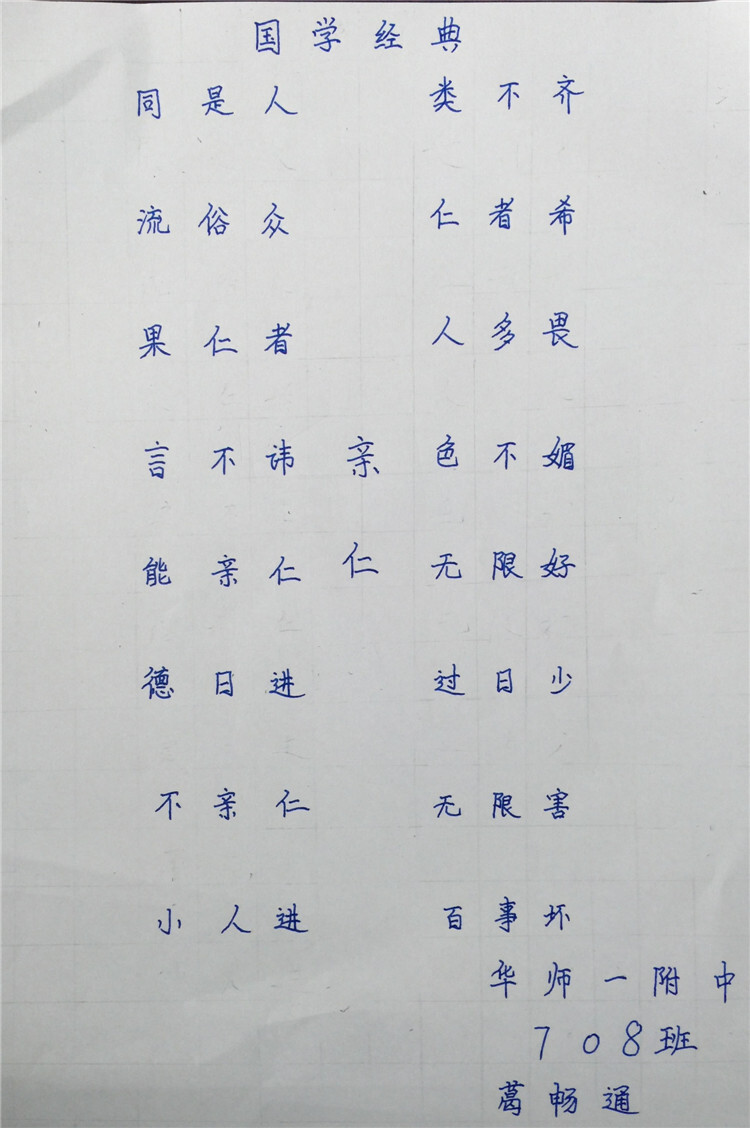 国学经典
同是人 类不齐
流俗众 仁者希
果仁者 人多畏
言不讳 亲 色不媚
能亲仁 仁 无限好
德日进 过日少
不亲仁 无限害
小人进 百事坏
华师一附中
708班
葛畅通